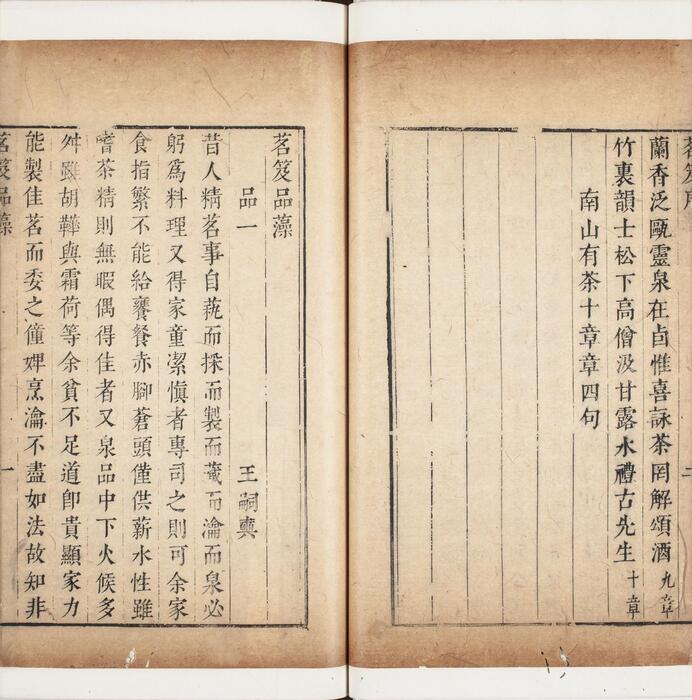 茗笈序
二
蘭香泛甌靈泉在卣惟喜詠茶罔解頌酒九章
竹裏韻士松下高僧汲甘露水禮古先生十章
南山有茶十章章四句
茗笈品藻
品一 王嗣奭
昔人精茗事自蓺而採而製而藏而瀹而泉必
躬爲料理又得家童潔慎者專司之則可余家
食指繁不能給饔餐赤腳蒼頭僅供薪水性雖
嗜茶精則無暇偶得佳者又泉品中下火候多
舛雖胡鞾與霜荷等余貧不足道卽貴顯家力
能製佳茗而委之僮婢烹瀹不盡如法故知非
茗笈品藻
一